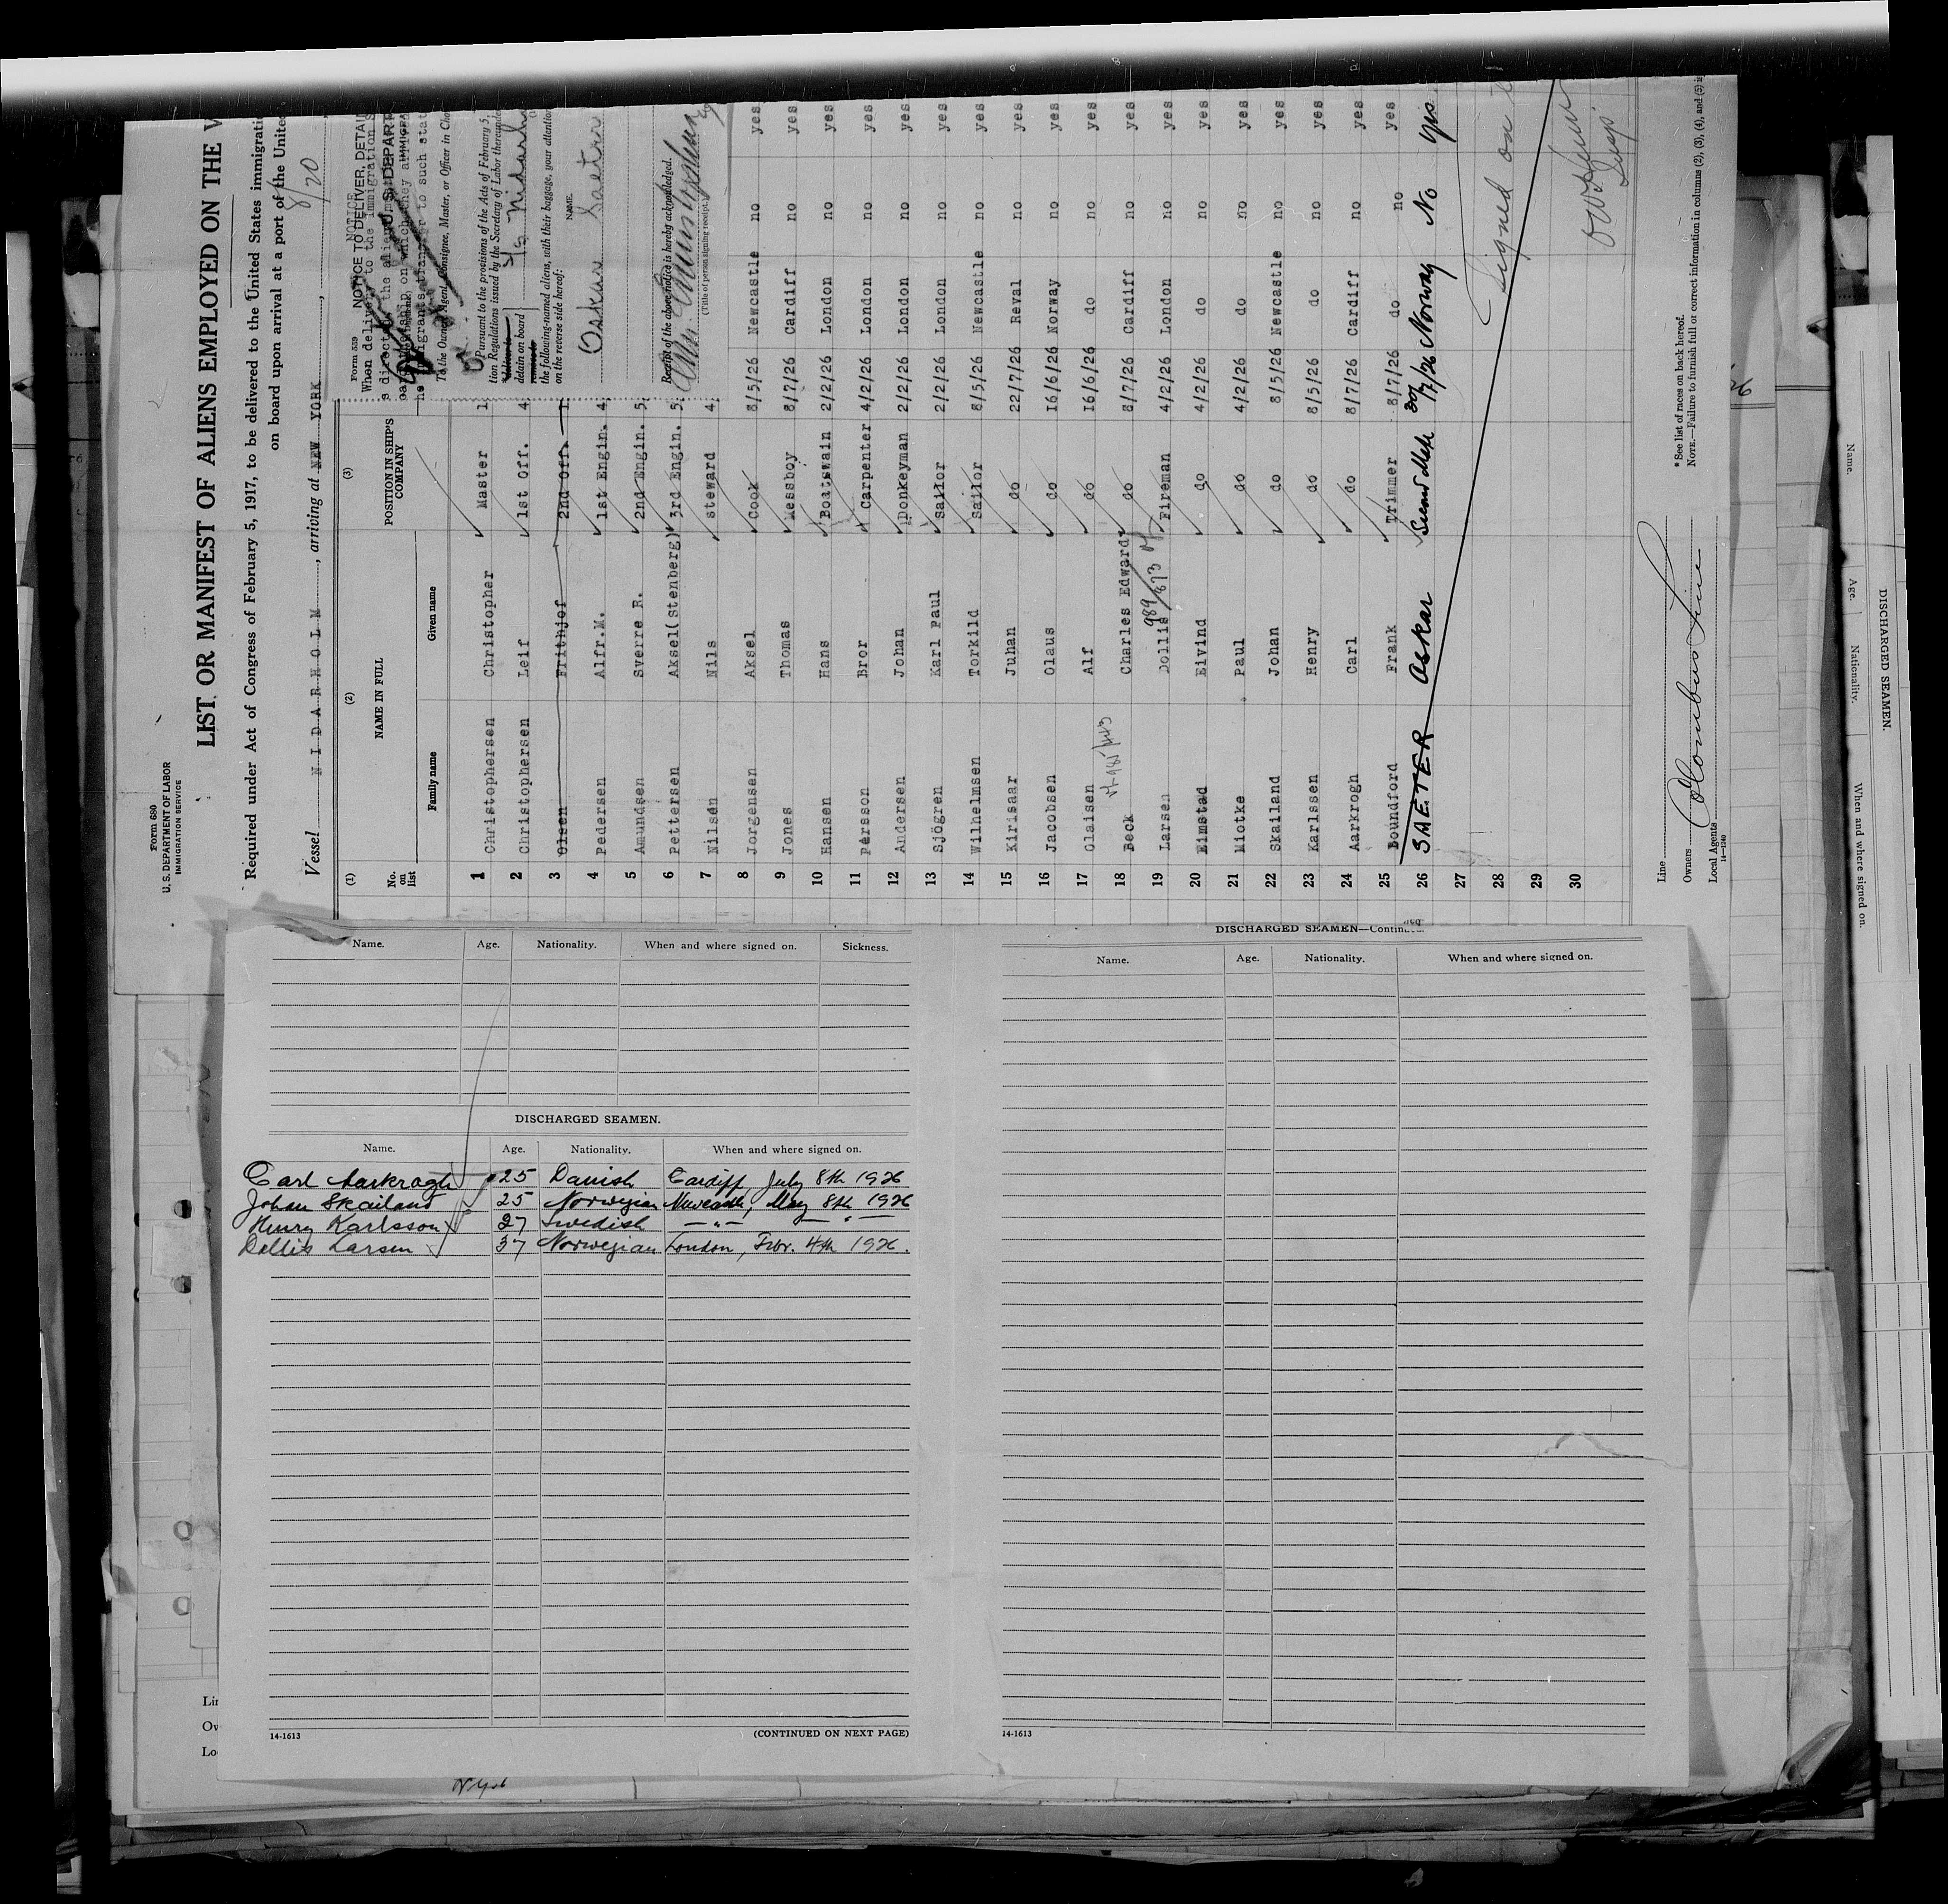 Form 680
U. S. DEPARTMENT OF LABOR
IMMIGRATION SERVICE
LIST OR MANIFEST OF ALIENS EMPLOYED ON THE V
Required under Act of Congress of February 5, 1917, to be delivered to the United States immigrati
on board upon arrival at a port of the United
8/20
Vessel N I D A R H O L M, arriving at NEW YORK,
Form 539
NOTICE TO DELIVER, DETAI
NOTICE
When delive to the Immigration S
U. S. DEPAR
IMMIGRA
To the Owner, Agent, Consignee, Master, or Officer in Cha
Pursuant to the provisions of the Acts of February 5,
tion Regulations issued by the Secretary of Labor thereunder
detain on board s/s Nidarh
the following-named aliens, with their baggage, your attention
on the reverse side hereof:
NAME.
Oskar Saetre
Receipt of the above notice is hereby acknowledged.
(Title of person signing receipt.)
(1) (2) (3)
No. on list NAME IN FULL POSITION IN SHIP'S COMPANY
Family name Given name
1 Christophersen Christopher Master 1
2 Christophersen Leif 1st Off. 4
3 Olsen Frithjof 2nd Off. 1
4 Pedersen Alfr.M. 1st Engin. 4
5 Amundsen Sverre R. 2nd Engin. 5
6 Pettersen Aksel(stenberg) 3rd Engin. 5
7 Nilsen Nils steward 4
8 Jorgensen Aksel Cook 8/5/26 Newcastle no yes
9 Jones Thomas Messboy 8/7/26 Cardiff no yes
10 Hansen Hans Boatswain 2/2/26 London no yes
11 Persson Bror Carpenter 4/2/26 London no yes
12 Andersen Johan Donkeyman 2/2/26 London no yes
13 Sjögren Karl Paul Sailor 2/2/26 London no yes
14 Wilhelmsen Torkild Sailor 8/5/26 Newcastle no yes
15 Kirisaar Juhan do 22/7/26 Reval no yes
16 Jacobsen Olaus do 16/6/26 Norway no yes
17 Olaisen Alf do 16/6/26 do no yes
18 Beck Charles Edward do 8/7/26 Cardiff no yes
989/873
19 Larsen Dollis Fireman 4/2/26 London no yes
20 Eimstad Eivind do 4/2/26 do no yes
21 Miotke Paul do 4/2/26 do no yes
22 Skailand Johan do 8/5/26 Newcastle no yes
23 Karlssen Henry do 8/5/26 do no yes
24 Aarkrogh Carl do 8/7/26 Cardiff no yes
25 Boundford Frank Trimmer 8/7/26 do no yes
26 SAETER Askar Second Mate 30/7/26 Norway No yes
27
28 Signed on
29
30
Line
Owners
Local Agents Columbus Line
14—1240
* See list of races on back hereof.
NOTE.—Failure to furnish full or correct information in columns (2), (3), (4), and (5) is
Name. Age. Nationality. When and where signed on. Sickness.
DISCHARGED SEAMEN.
Name. Age. Nationality. When and where signed on.
Carl Aarkrogh 25 Danish Cardiff, July 8th 1926
Johan Skailand 25 Norwegian Newcastle, May 8th 1926
Henry Karlsson 27 Swedish —"— —"—
Dollis Larsen 37 Norwegian London, Febr. 4th 1926.
14-1613
(CONTINUED ON NEXT PAGE)
DISCHARGED SEAMEN—Continu
Name. Age. Nationality. When and where signed on.
14-1613
DISCHARGED SEAMEN.
Name. Age. Nationality. When and where signed on.
Lin
Ow
Lo